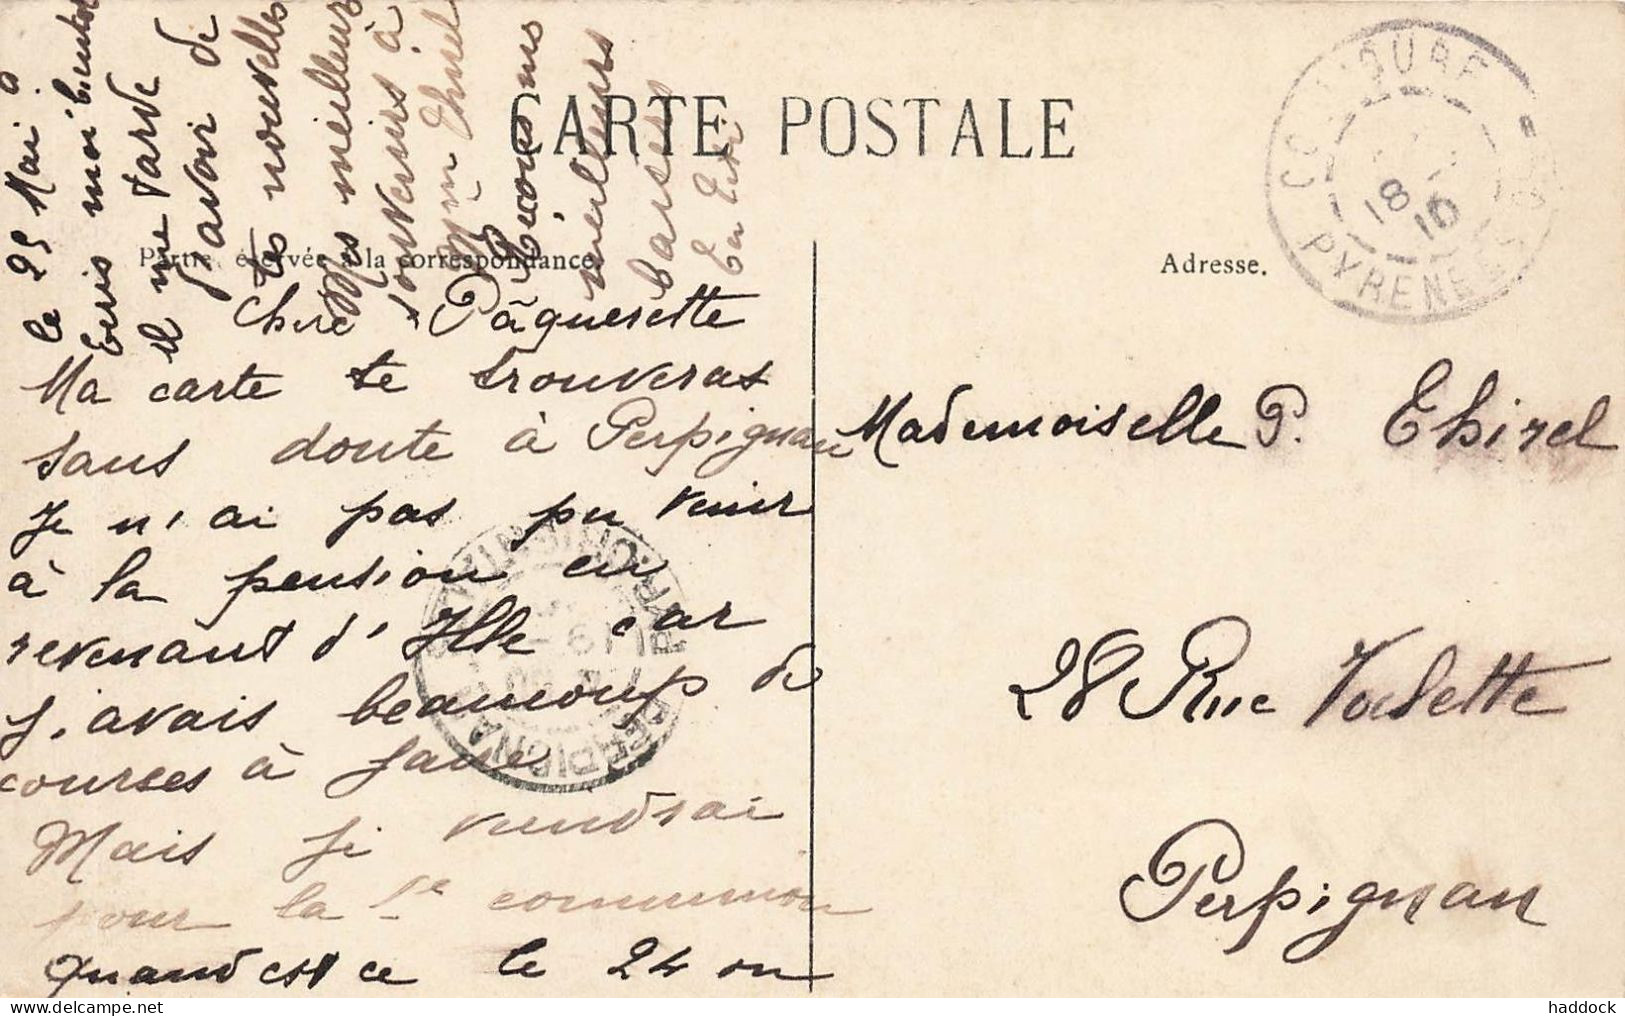 CARTE POSTALE
Partie réservée à la correspondance.
Adresse.
COLLIOURE
18 10
PYRENEES
Chère Pâquerette
Ma carte te trouveras
sans doute à Perpignan
Je n'ai pas pu venir
à la pension en
revenant d'Ille car
j'avais beaucoup de
courses à faire
Mais je viendrai
pour la 1re communion
Quand est ce le 24 ou
le 25 Mai ?
Ecris moi bientôt
il me tarde
d'avoir de
tes nouvelles
Mes meilleurs
souvenirs à
Reçois mes
meilleurs
baisers
Mademoiselle P. Thirel
28 Rue
Perpignan
PERPIGNAN
haddock